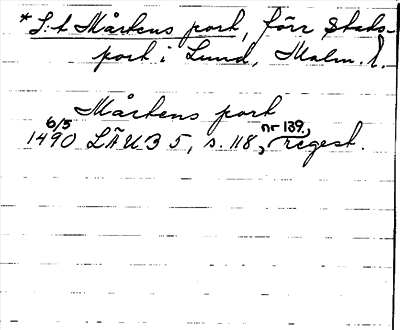 *S:t Mårtens port, förr Stads-
port i Lund, Malm. l.
Mårtens port
6/5 nr 139,
1490 LÄUB 5, s. 118, regest.